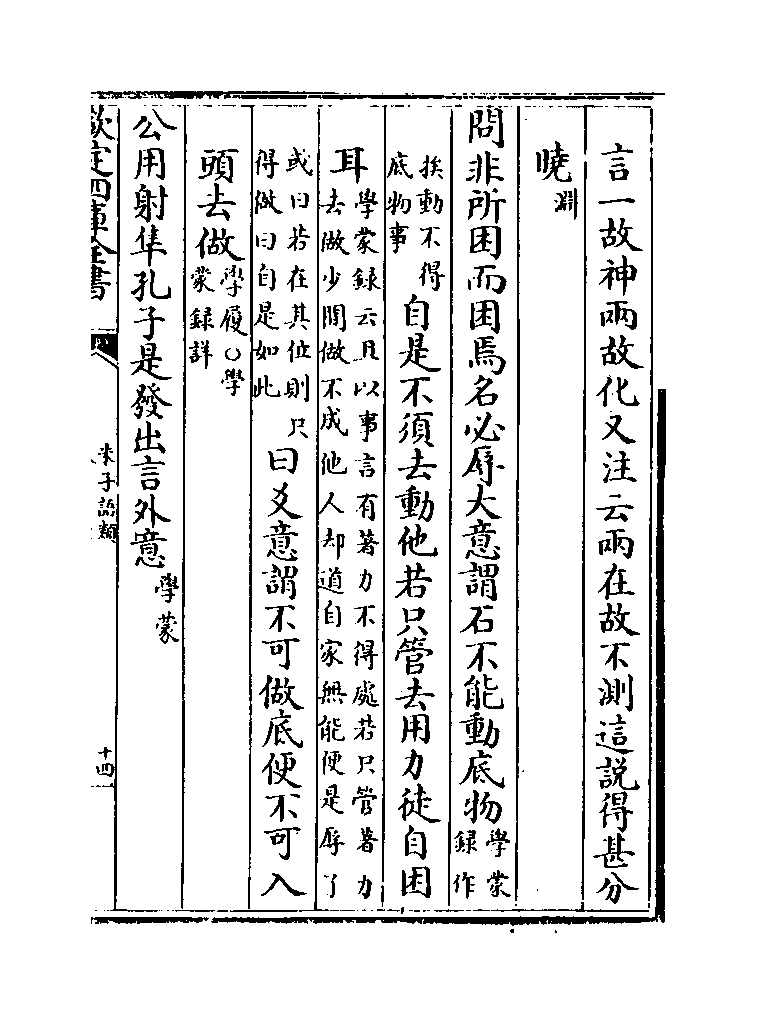 言一故神兩故化又注云兩在故不測這説得甚分
曉淵
問非所困而困焉名必辱大意謂石不能動底物學蒙録作
挨動不得底物事自是不須去動他若只管去用力徒自困
耳學蒙録云且以事言有著力不得處若只管著力去做少間做不成他人却道自家無能便是辱了
或曰若在其位則只得做曰自是如此曰爻意謂不可做底便不可入
頭去做學履○學蒙録詳
公用射隼孔子是發出言外意學蒙
欽定四庫全書
朱子語類
十四